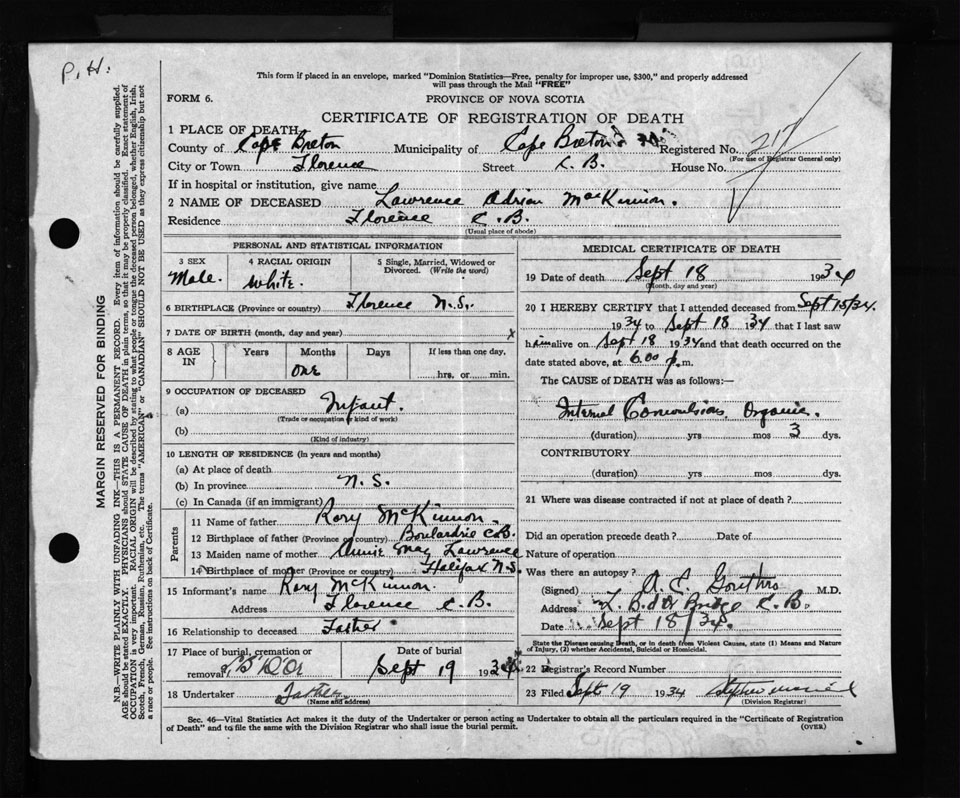 P.H.
This form if placed in an envelope, marked "Dominion Statistics—Free, penalty for improper use, $300," and properly addressed
will pass through the Mail "FREE"
FORM 6.
PROVINCE OF NOVA SCOTIA
CERTIFICATE OF REGISTRATION OF DEATH
1 PLACE OF DEATH
County of Cape Breton Municipality of Cape Breton Registered No. 217
(For use of Registrar General only)
City or Town Florence Street C.B. House No.
If in hospital or institution, give name
2 NAME OF DECEASED Lawrence Adrian MacKinnon.
Residence Florence C.B.
(Usual place of abode)
PERSONAL AND STATISTICAL INFORMATION
3 SEX Male.
4 RACIAL ORIGIN White.
5 Single, Married, Widowed or Divorced. (Write the word)
6 BIRTHPLACE (Province or country) Florence N.S.
7 DATE OF BIRTH (month, day and year) x
8 AGE IN Years Months one Days If less than one day. hrs. or min.
9 OCCUPATION OF DECEASED
(a) Infant.
(Trade or occupation or kind of work)
(b)
(Kind of industry)
10 LENGTH OF RESIDENCE (in years and months)
(a) At place of death
(b) In province N.S.
(c) In Canada (if an immigrant)
Parents
11 Name of father Rory McKinnon.
12 Birthplace of father (Province or country) Boulardrie C.B.
13 Maiden name of mother Annie May Lawrence
14 Birthplace of mother (Province or country) Halifax N.S.
15 Informant's name Rory McKinnon
Address Florence C.B.
16 Relationship to deceased Father
17 Place of burial, cremation or removal L B D'Or Date of burial Sept 19 1934
18 Undertaker Father
(Name and address)
MEDICAL CERTIFICATE OF DEATH
19 Date of death Sept 18 1934
(Month, day and year)
20 I HEREBY CERTIFY that I attended deceased from Sept 15/34.
1934 to Sept 18 1934 that I last saw
him alive on Sept 18 1934 and that death occurred on the
date stated above, at 6.00 p.m.
The CAUSE of DEATH was as follows:—
Internal Convulsions Organic.
(duration) yrs mos 3 dys.
CONTRIBUTORY
(duration) yrs mos dys.
21 Where was disease contracted if not at place of death?
Did an operation precede death? Date of
Nature of operation
Was there an autopsy?
(Signed) A. C. Gouthro M.D.
Address L. B d'Or Bridge C.B.
Date Sept 18/34.
State the Disease causing Death, or in death from Violent Causes, state (1) Means and Nature
of Injury, (2) whether Accidental, Suicidal or Homicidal.
22 Registrar's Record Number
23 Filed Sept 19 1934
(Division Registrar)
Sec. 46—Vital Statistics Act makes it the duty of the Undertaker or person acting as Undertaker to obtain all the particulars required in the "Certificate of Registration
of Death" and to file the same with the Division Registrar who shall issue the burial permit. (OVER)
MARGIN RESERVED FOR BINDING
N.B.—WRITE PLAINLY WITH UNFADING INK—THIS IS A PERMANENT RECORD. Every item of information should be carefully supplied.
AGE should be stated EXACTLY. PHYSICIANS should STATE CAUSE OF DEATH in plain terms, so that it may be properly classified. Exact statement of
OCCUPATION is very important. RACIAL ORIGIN will be described by stating to what people or tongue the deceased person belonged, whether English, Irish,
Scotch, French, German, Russian, Ruthenian, etc. The terms "AMERICAN" or "CANADIAN" SHOULD NOT BE USED as they express citizenship but not
a race or people. See instructions on back of Certificate.